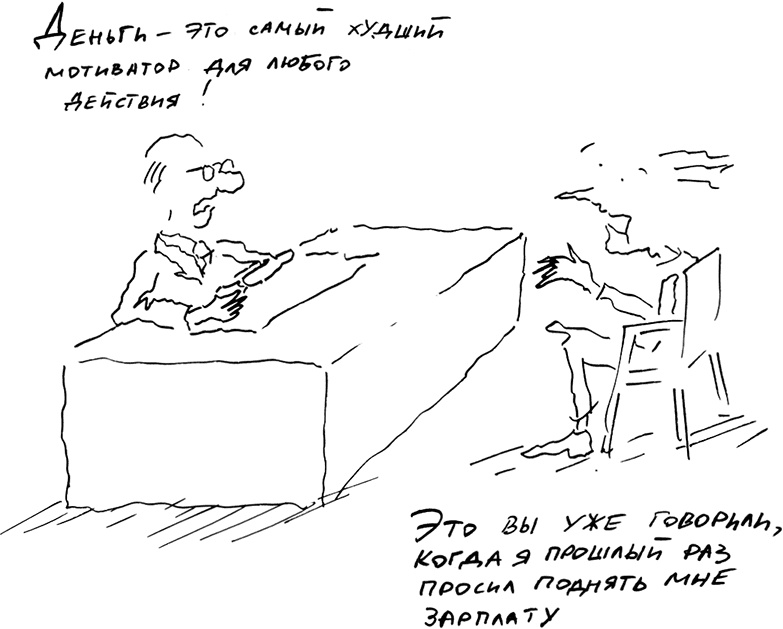 Деньги - это самый худший
мотиватор для любого
действия!
Это вы уже говорили,
когда я прошлый раз
просил поднять мне
зарплату